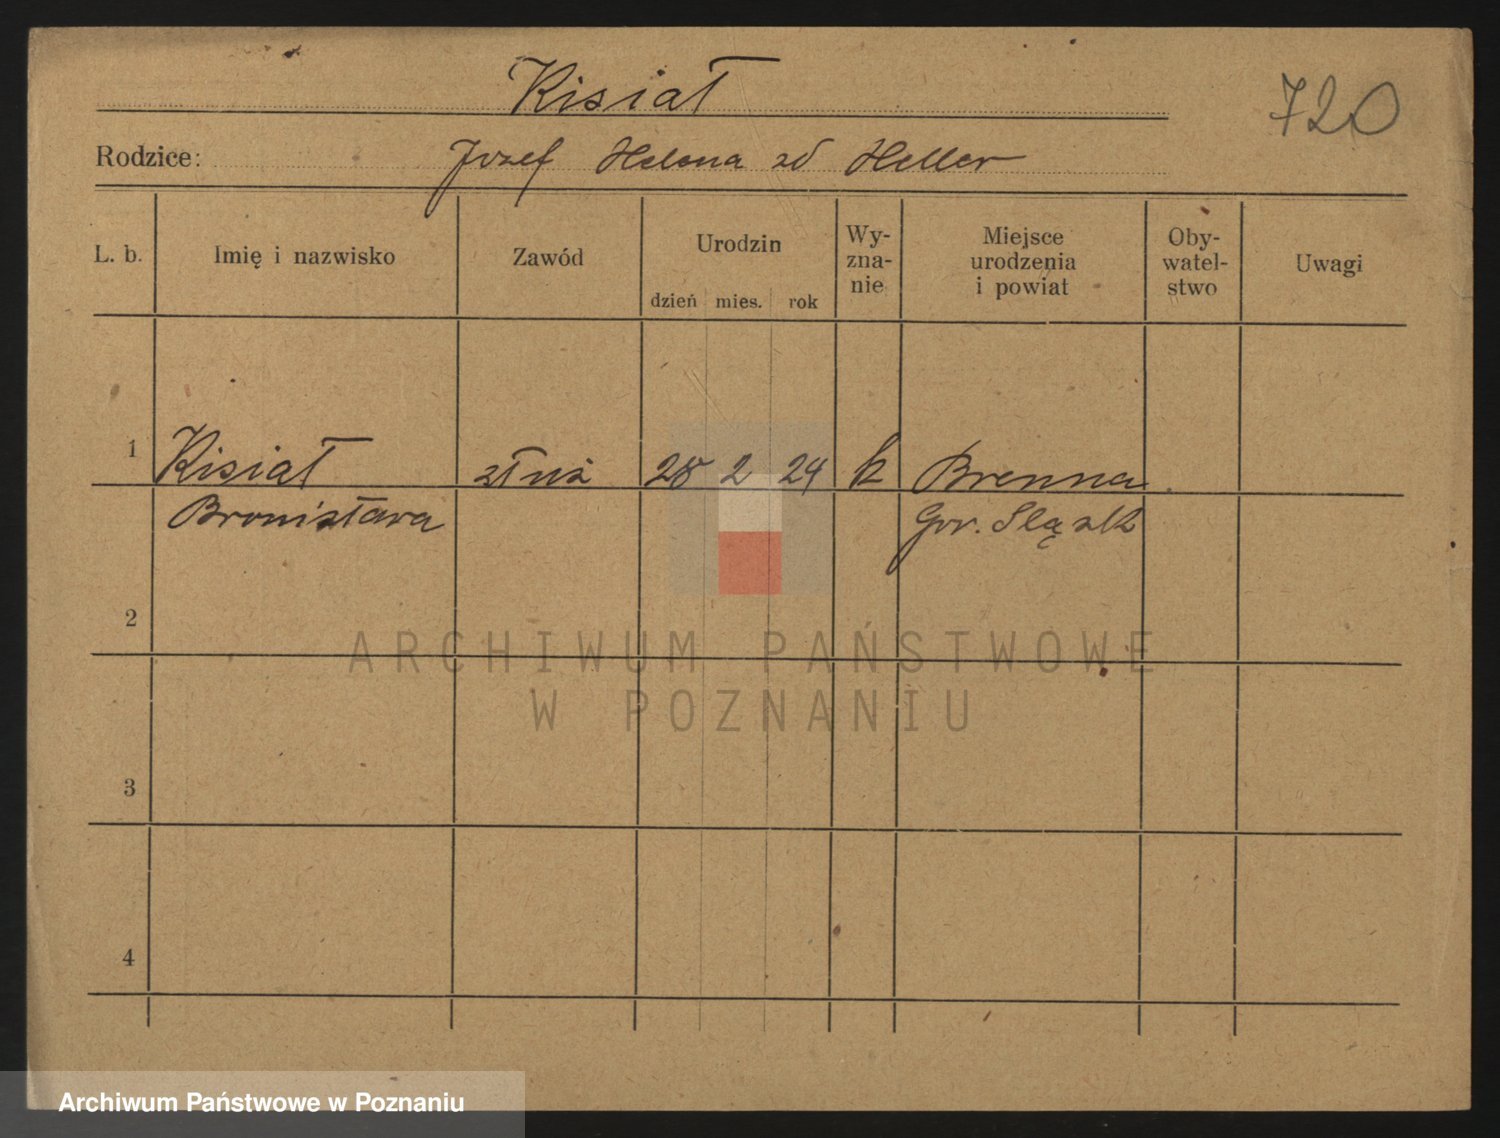 Kisiał
720
Rodzice: Jozef Helena zd Heller
L. b. Imię i nazwisko Zawód Urodzin dzień mies. rok Wy-zna-nie Miejsce urodzenia i powiat Oby-watel-stwo Uwagi
1 Kisiał służ 28 2 24 k Brenna
Bronisława Gór. Śląsk
2
3
4
ARCHIWUM PAŃSTWOWE
W POZNANIU
Archiwum Państwowe w Poznaniu